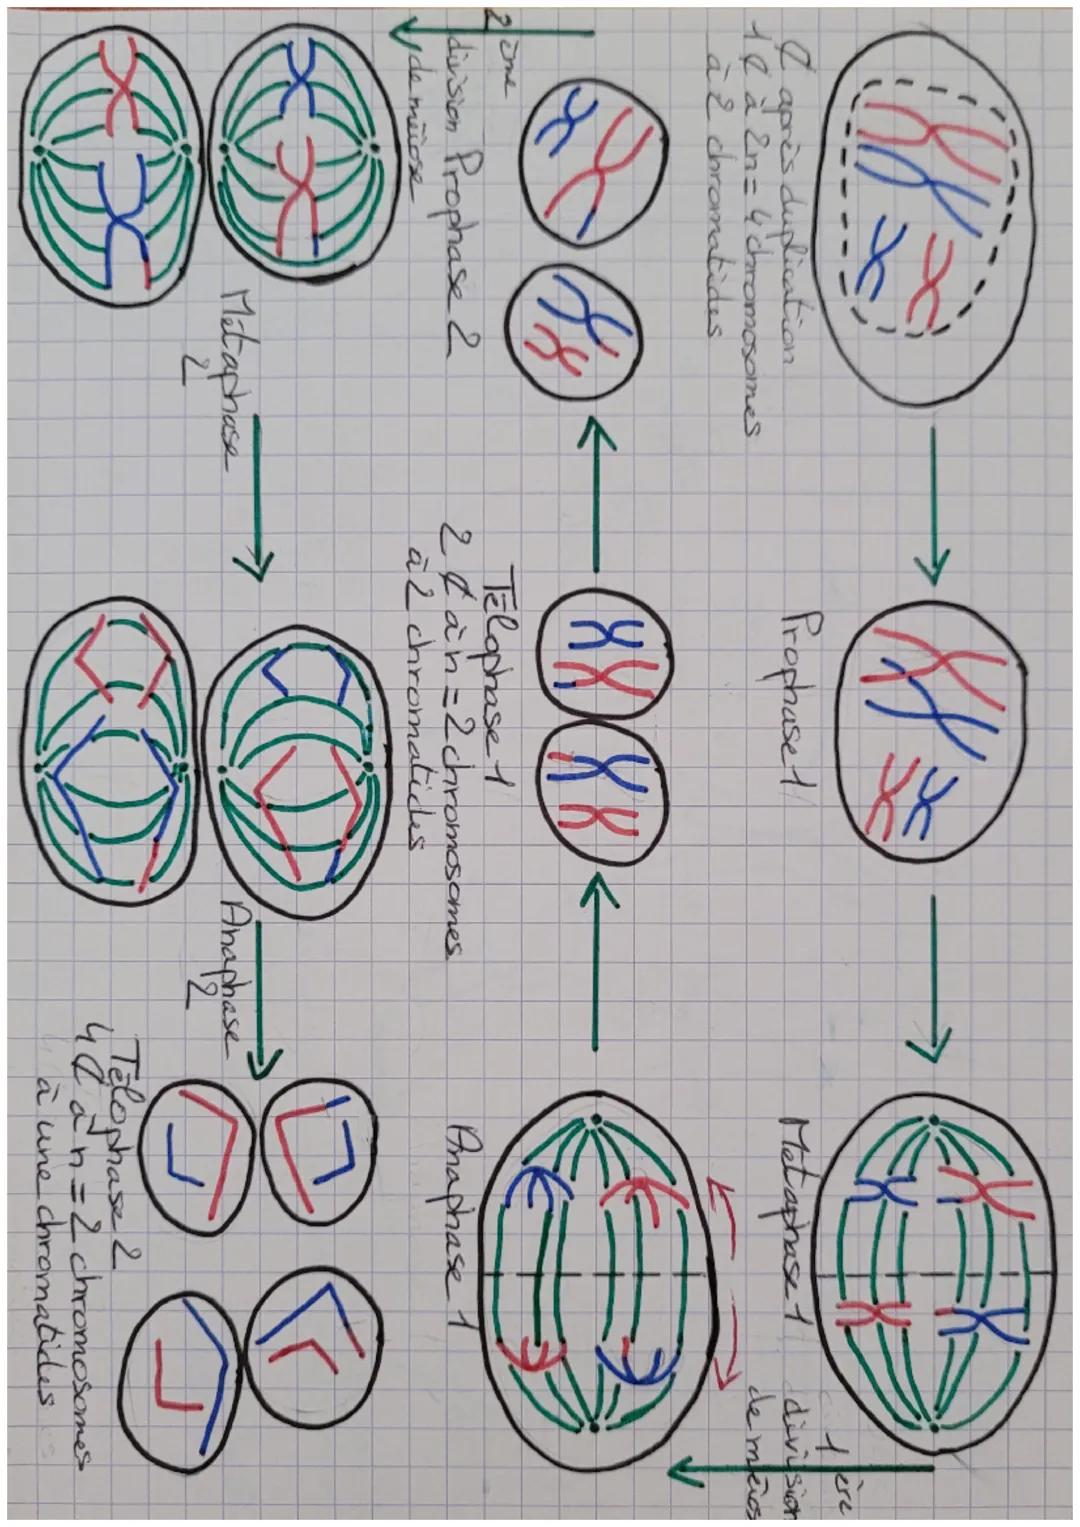 ₵ après duplication
1 ₵ à 2n = 4 chromosomes
à 2 chromatides
Prophase 1
Métaphase 1
1 ère
division
de méios
2 ème
division
de méiose
Prophase 2
Télophase 1
2 ₵ à n = 2 chromosomes
à 2 chromatides
Anaphase 1
Métaphase
2
Anaphase
2
Télophase 2
4 ₵ à n = 2 chromosomes
à une chromatides